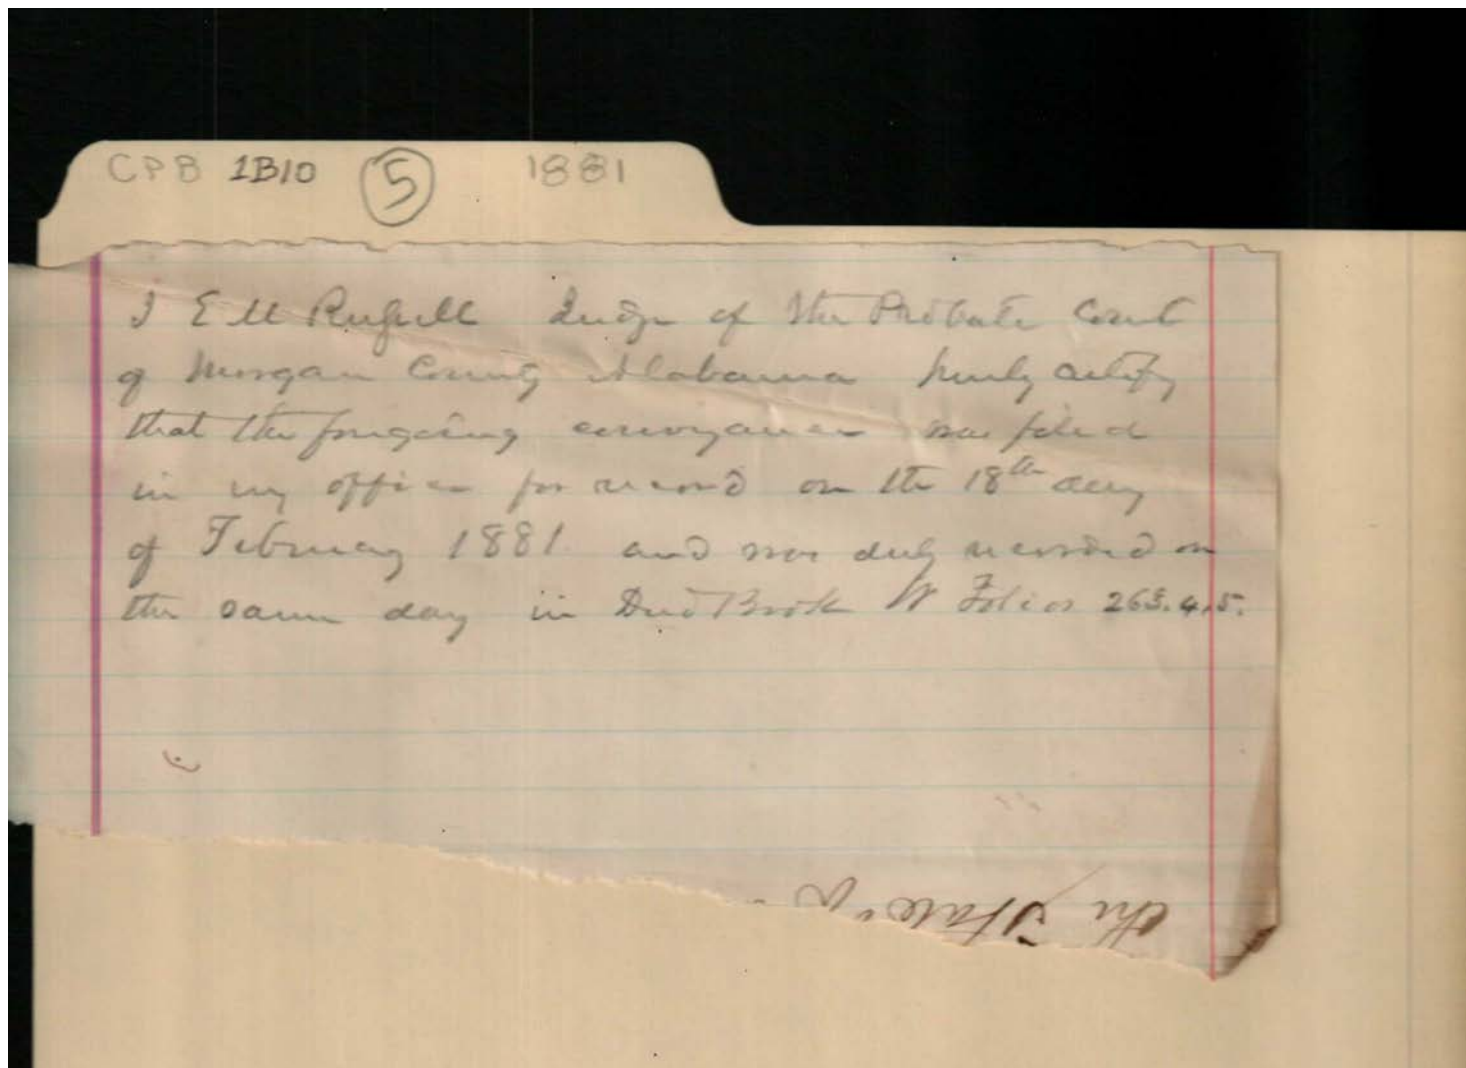 CPB 1B10 5 1881
I E M Russell Judge of the Probate Court
of Morgan County Alabama hereby certify
that the foregoing conveyance was filed
in my office for record on the 18th day
of February 1881 and was duly recorded on
the same day in Deed Book W Folios 263.4.5.
the State of